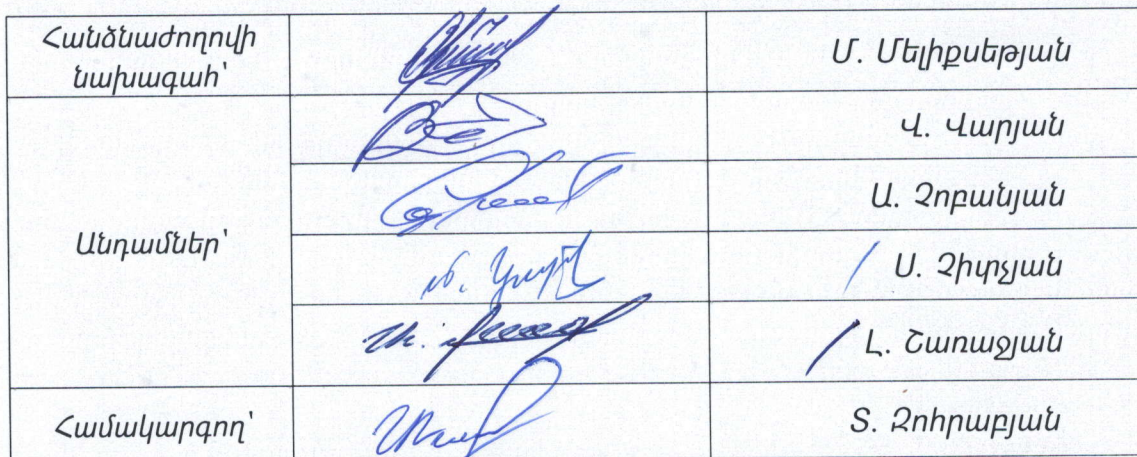 Հանձնաժողովի
նախագահ՝
Մ. Մելիքսեթյան
Անդամներ՝
Վ. Վարյան
Ա. Չոբանյան
Ս. Չիտչյան
Լ. Շառաջյան
Համակարգող՝
Տ. Զոհրաբյան